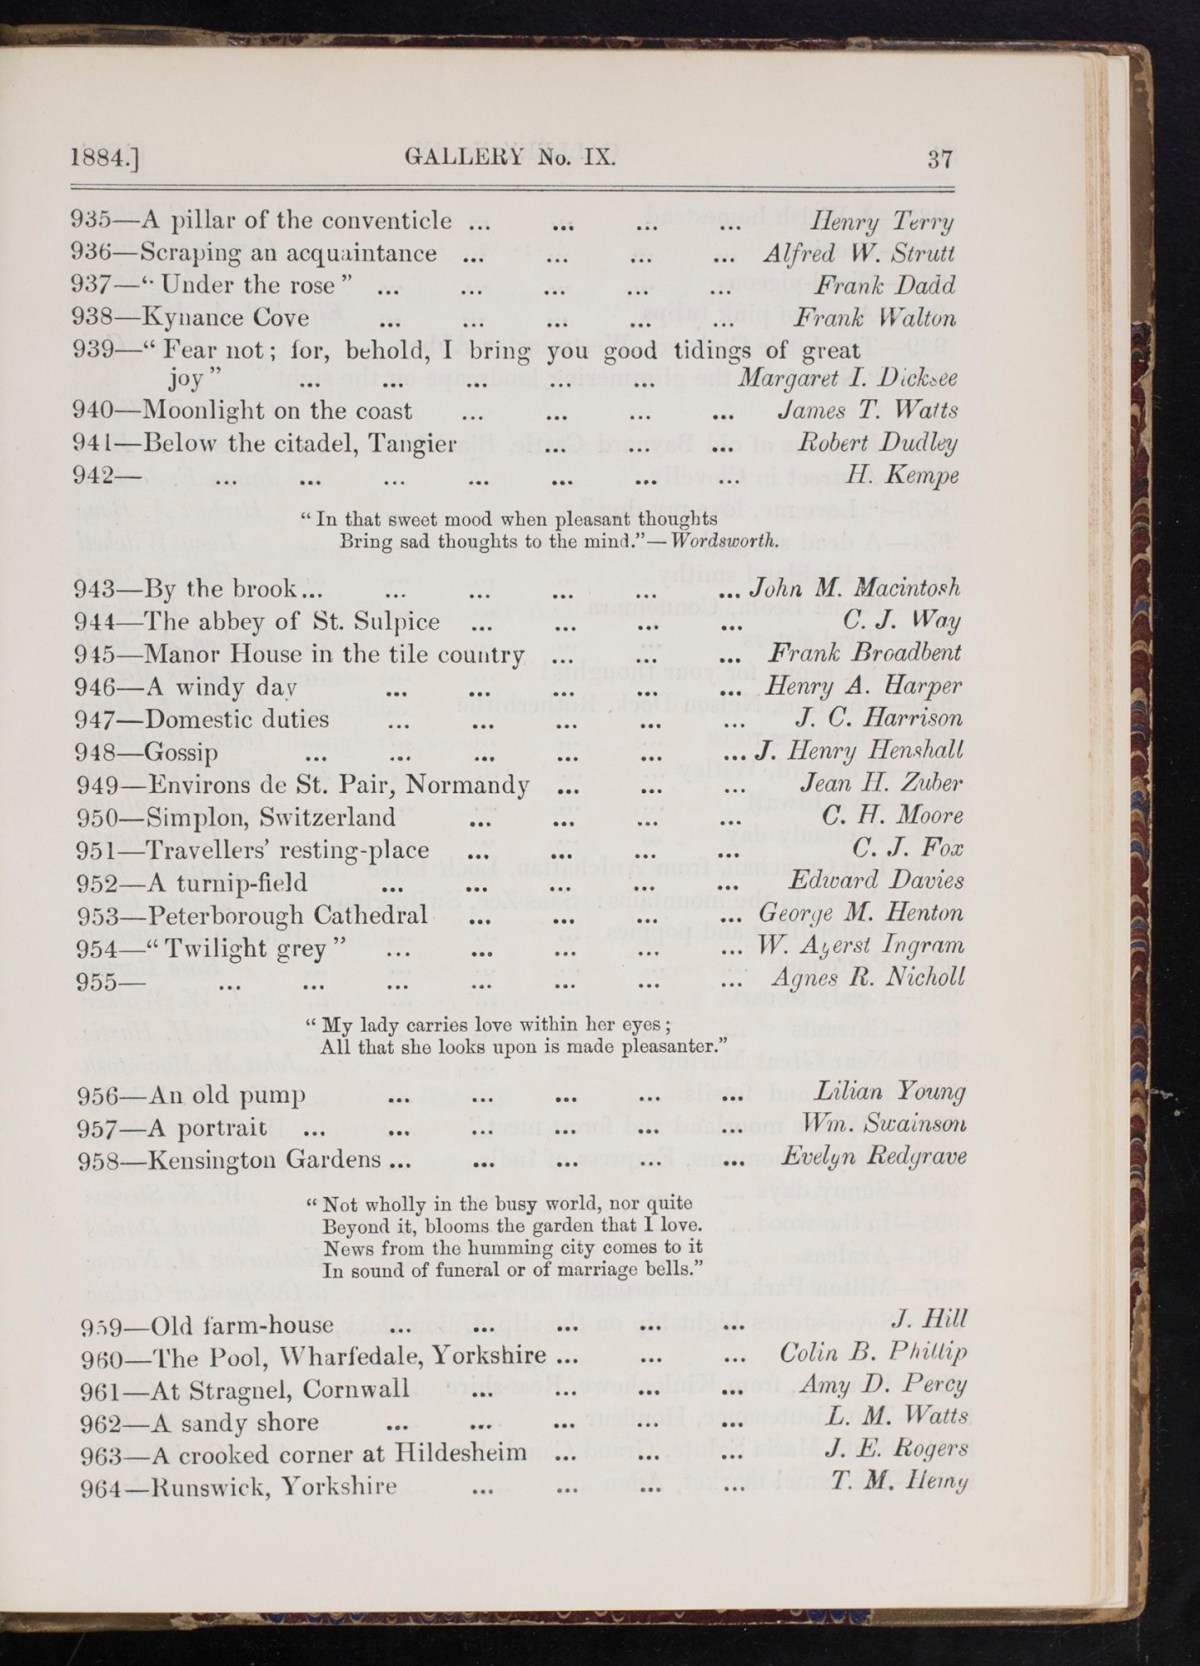 1884.] GALLERY No. IX. 37
935—A pillar of the conventicle ... ... ... ... Henry Terry
936—Scraping an acquaintance ... ... ... ... Alfred W. Strutt
937—“ Under the rose ” ... ... ... ... ... Frank Dadd
938—Kynance Cove ... ... ... ... ... Frank Walton
939—“ Fear not ; for, behold, I bring you good tidings of great
joy ” ... ... ... ... ... Margaret I. Dicksee
940—Moonlight on the coast ... ... ... ... James T. Watts
941—Below the citadel, Tangier ... ... ... Robert Dudley
942— ... ... ... ... ... ... ... H. Kempe
“ In that sweet mood when pleasant thoughts
Bring sad thoughts to the mind.”—Wordsworth.
943—By the brook... ... ... ... ... ... John M. Macintosh
944—The abbey of St. Sulpice ... ... ... ... C. J. Way
945—Manor House in the tile country ... ... ... Frank Broadbent
946—A windy day ... ... ... ... ... Henry A. Harper
947—Domestic duties ... ... ... ... ... J. C. Harrison
948—Gossip ... ... ... ... ... ... J. Henry Henshall
949—Environs de St. Pair, Normandy ... ... ... Jean H. Zuber
950—Simplon, Switzerland ... ... ... ... C. H. Moore
951—Travellers’ resting-place ... ... ... ... C. J. Fox
952—A turnip-field ... ... ... ... ... Edward Davies
953—Peterborough Cathedral ... ... ... ... George M. Henton
954—“ Twilight grey ” ... ... ... ... ... W. Ayerst Ingram
955— ... ... ... ... ... ... ... Agnes R. Nicholl
“ My lady carries love within her eyes ;
All that she looks upon is made pleasanter.”
956—An old pump ... ... ... ... ... Lilian Young
957—A portrait ... ... ... ... ... ... Wm. Swainson
958—Kensington Gardens ... ... ... ... ... Evelyn Redgrave
“ Not wholly in the busy world, nor quite
Beyond it, blooms the garden that I love.
News from the humming city comes to it
In sound of funeral or of marriage bells.”
959—Old farm-house ... ... ... ... ... J. Hill
960—The Pool, Wharfedale, Yorkshire ... ... ... Colin B. Phillip
961—At Stragnel, Cornwall ... ... ... ... Amy D. Percy
962—A sandy shore ... ... ... ... ... L. M. Watts
963—A crooked corner at Hildesheim ... ... ... J. E. Rogers
964—Runswick, Yorkshire ... ... ... ... T. M. Hemy